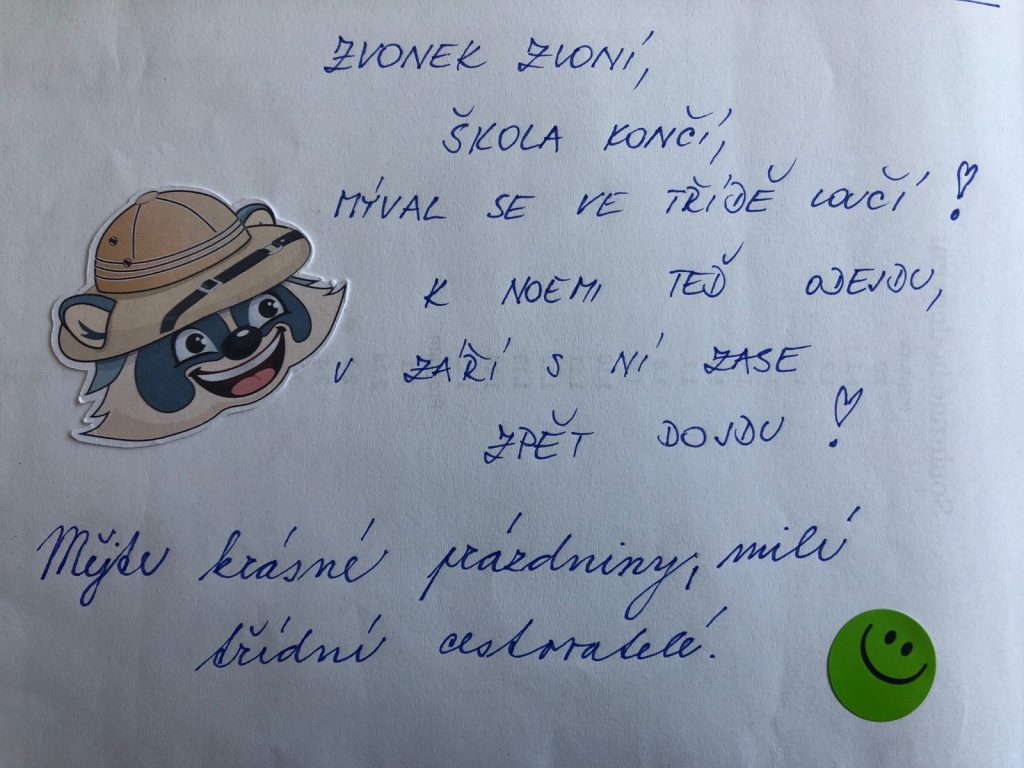 ZVONEK ZVONÍ,
ŠKOLA KONČÍ,
MÝVAL SE VE TŘÍDĚ LOUČÍ!
K NOEMI TEĎ ODEJDU,
V ZÁŘÍ S NÍ ZASE
ZPĚT DOJDU!
Mějte krásné prázdniny, milí
třídní cestovatelé.